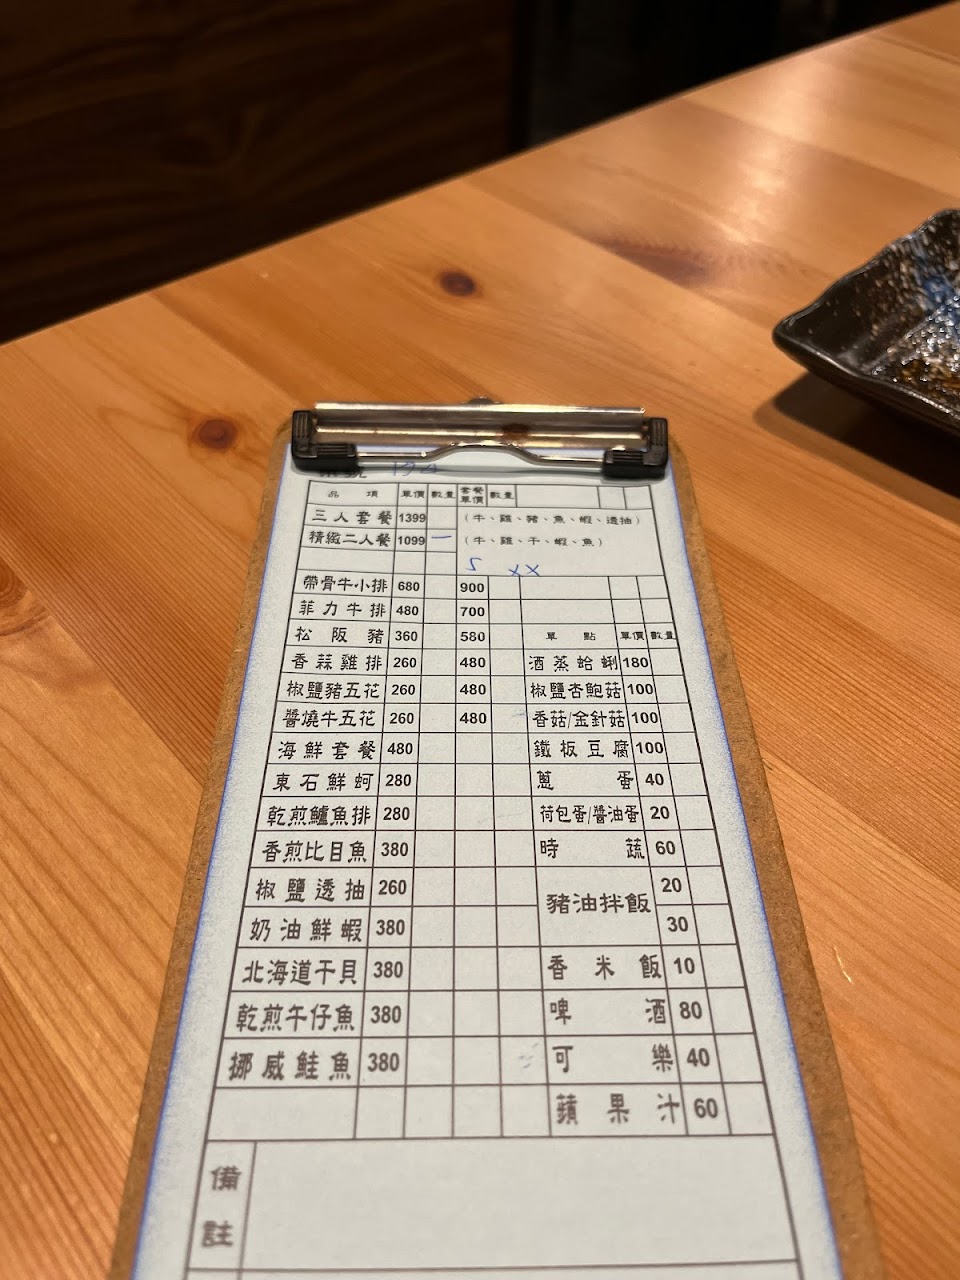 品 項 單價 數量 套餐單價 數量
三人套餐 1399 (牛、雞、豬、魚、蝦、透抽)
精緻二人餐 1099 一 (牛、雞、干、蝦、魚)
5 XX
帶骨牛小排 680 900
菲力牛排 480 700
松阪豬 360 580 單點 單價 數量
香蒜雞排 260 480 酒蒸蛤蜊 180
椒鹽豬五花 260 480 椒鹽杏鮑菇 100
醬燒牛五花 260 480 香菇/金針菇 100
海鮮套餐 480 鐵板豆腐 100
東石鮮蚵 280 蔥蛋 40
乾煎鱸魚排 280 荷包蛋/醬油蛋 20
香煎比目魚 380 時蔬 60
椒鹽透抽 260 豬油拌飯 20
奶油鮮蝦 380 30
北海道干貝 380 香米飯 10
乾煎午仔魚 380 啤酒 80
挪威鮭魚 380 可樂 40
蘋果汁 60
備註